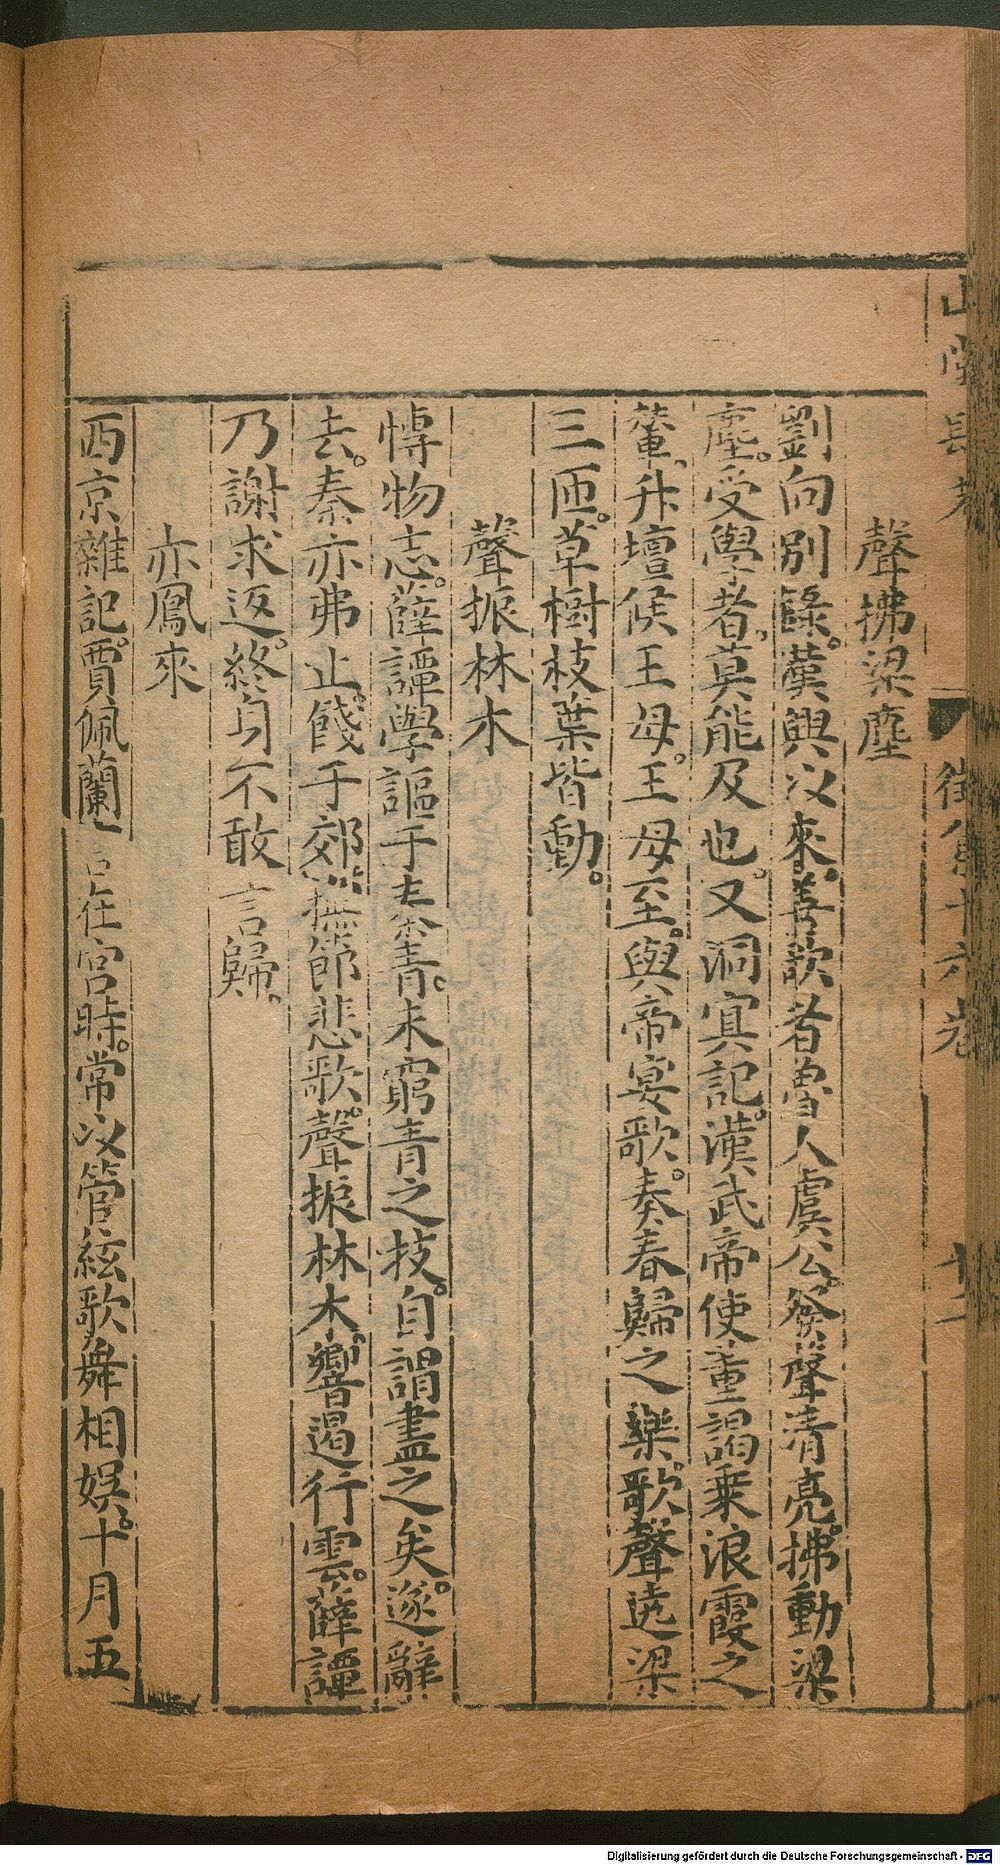 山堂肆考
徵八第十六卷
聲拂梁塵
劉向別錄。漢興以來。善歌者魯人虞公。發聲清亮。拂動梁
塵。受學者、莫能及也。又洞冥記。漢武帝使董謁乘浪霞之
輦、升壇候王母。王母至。與帝宴歌。奏春歸之樂。歌聲遶梁
三匝。草樹枝葉皆動。
聲振林木
博物志。薛譚學謳于秦青。未窮青之技。自謂盡之矣。遂辭
去。秦亦弗止。餞于郊 撫節悲歌。聲振林木。響遏行雲。薛譚
乃謝求返。終身不敢言歸。
亦鳳來
西京雜記。賈佩蘭言在宮時。常以管絃歌舞相娛。十月五
Digitalisierung gefördert durch die Deutsche Forschungsgemeinschaft - DFG